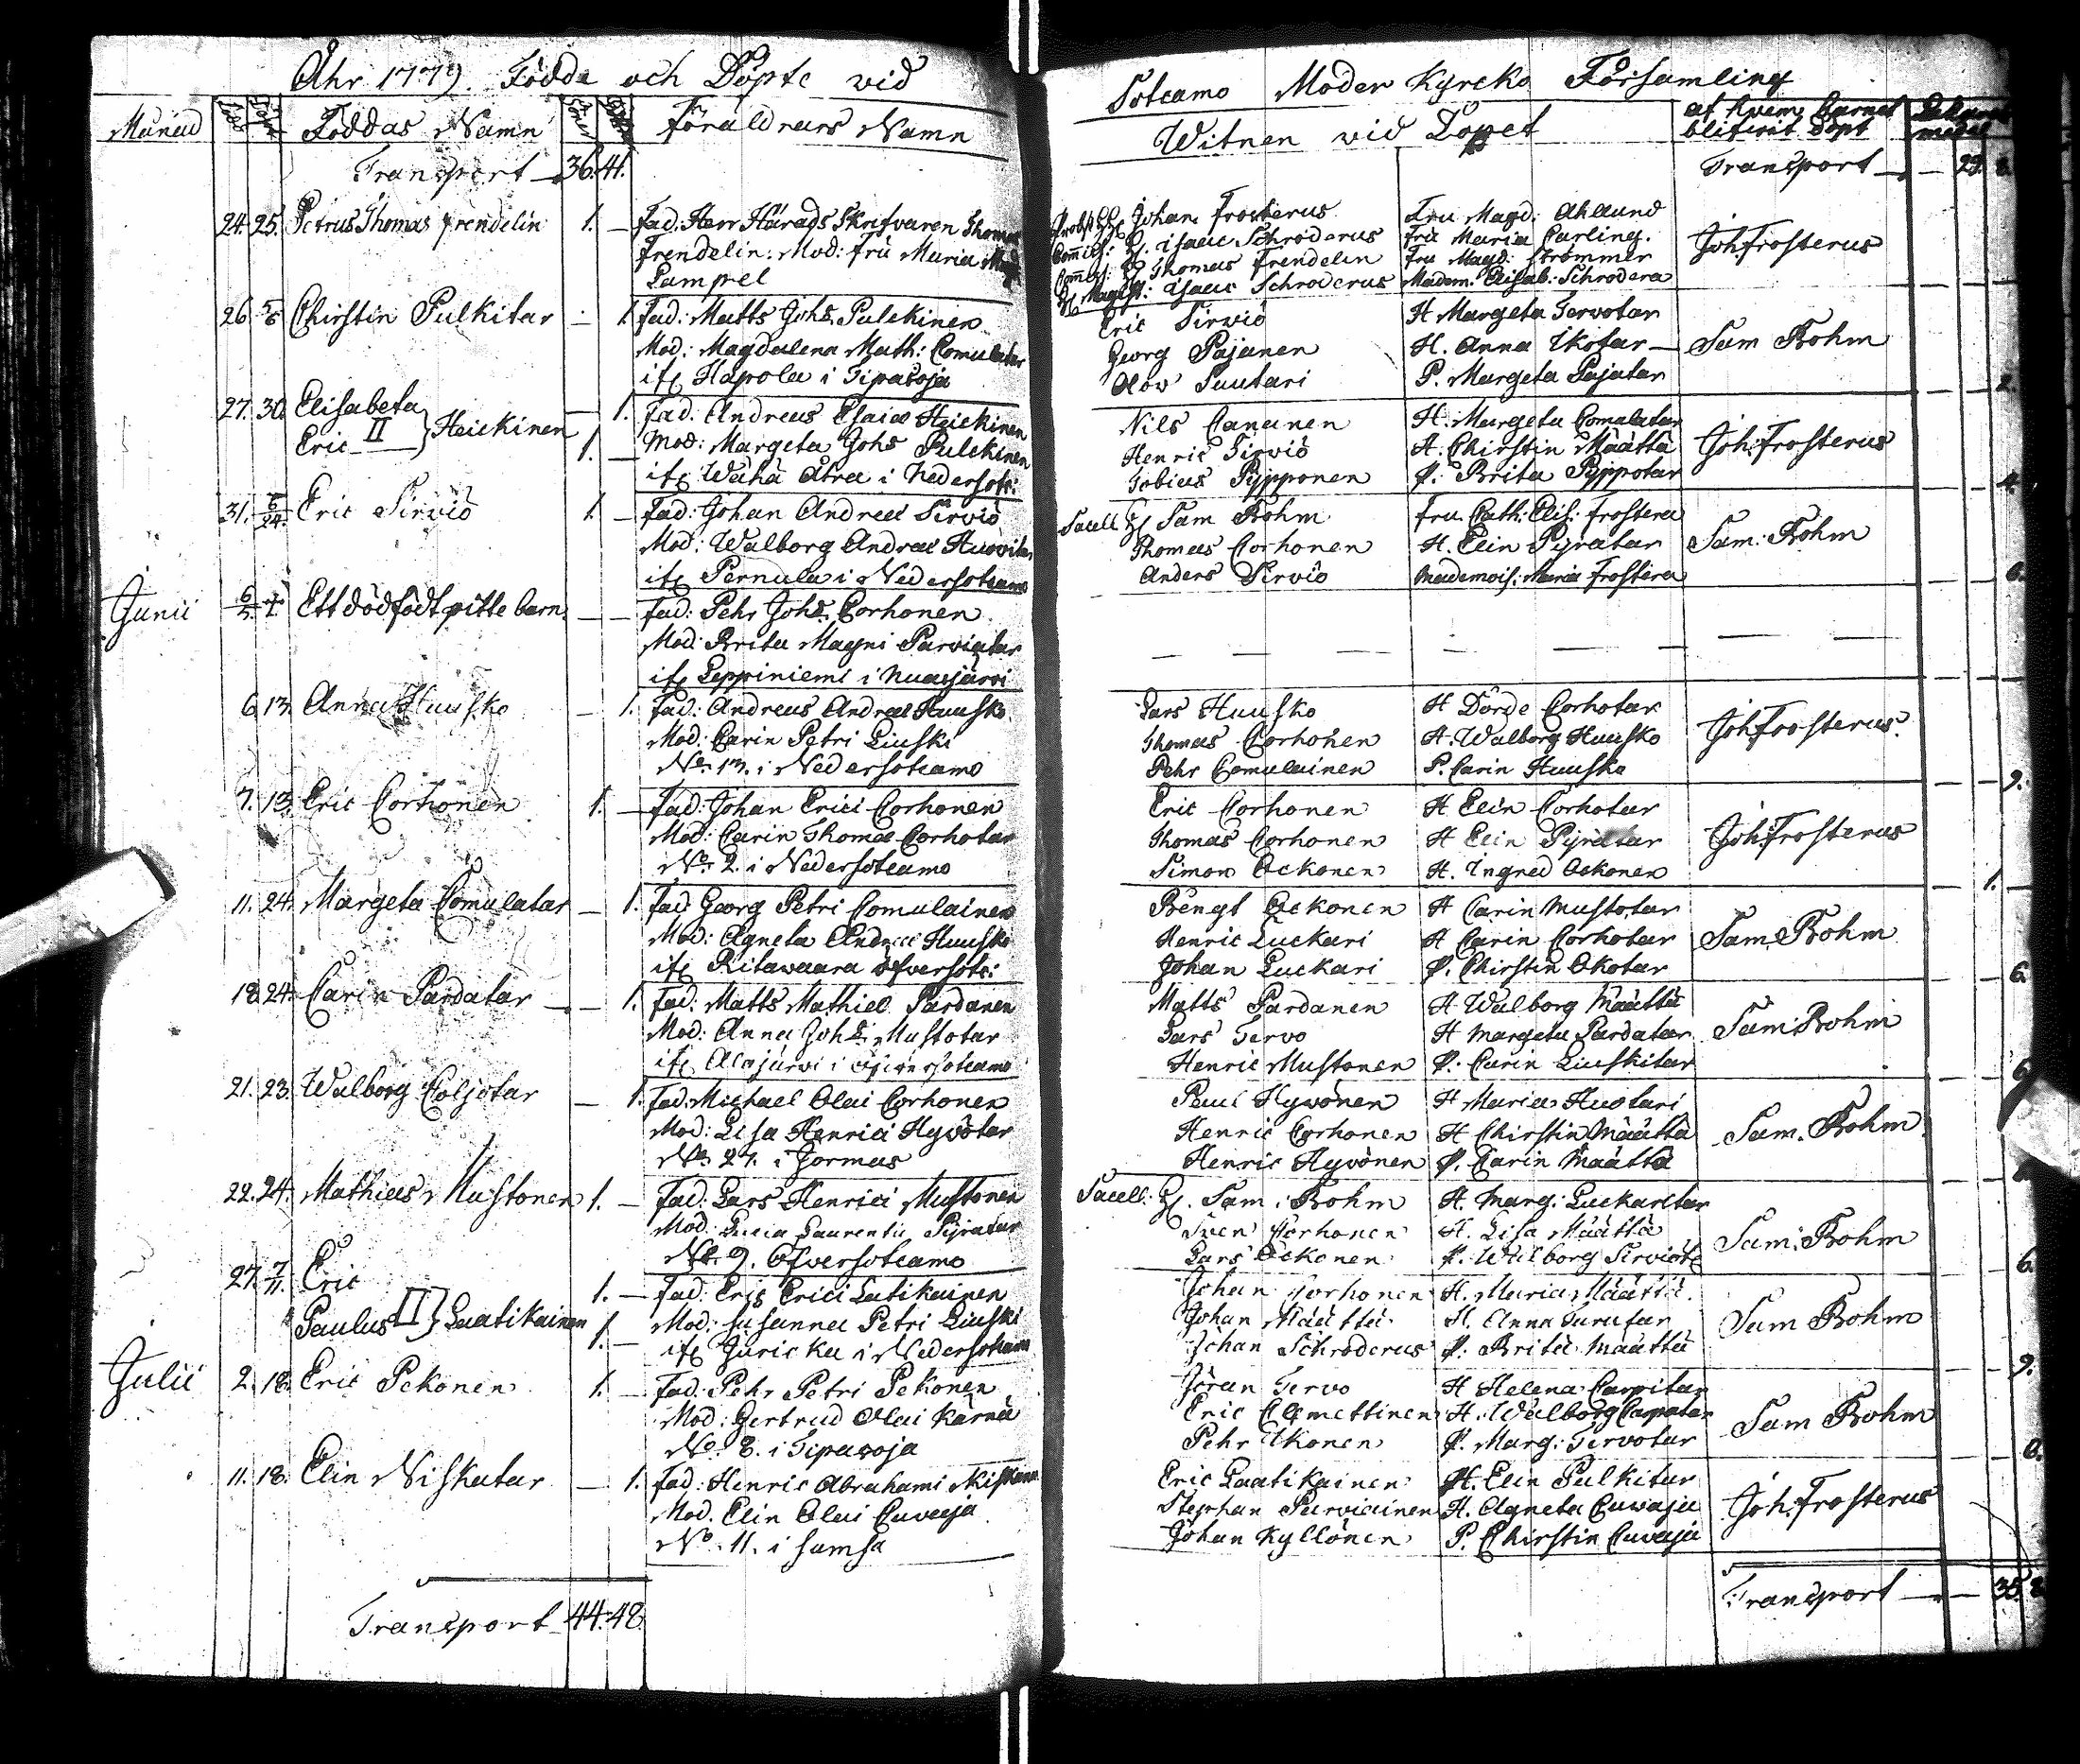 Åhr 1779. Födde och Döpte vid
Månad Född Döpt Föddas Namn Söner Döttr Föräldrars Namn
Transport 36. 41.
24. 25. Petrus Thomas Frendelin 1. — Fad: Herr Härads Skrifvaren Thomas
Frendelin: Mod: Fru Maria Magd
Lampel
26. 5/6 Chirstin Pulkitar — 1. Fad: Matts Johs. Pulckinen
Mod: Magdalena Math: Comulatar
ifr Hapola i Tipasoja
27. 30. Elisabeta — 1. Fad: Andreas Esaiæ Heickinen
Eric II } Heickinen 1. — Mod: Margeta Johs Pulckinen
ifr Wähä Ahra i Nedersotc:
31. 6/24. Eric Sirviö 1. — Fad: Johan Andreæ Sirviö
Mod: Walborg Andreæ Huovitar
ifr Pernula i Nedersotcamo
Junii Ett dödfödt pilttebarn — — Fad: Pehr Johs. Corhonen
Mod: Brita Magni Parviatar
ifr Leppiniemi i Nuasjärvi
6. 13. Anna Huusko — 1. Fad: Andreas Andreæ Huusko
Mod: Carin Petri Liuski
No. 13. i Nedersotcamo
7. 13. Eric Corhonen 1. — Fad: Johan Erici Corhonen
Mod: Carin Thomæ Corhotar
No. 2. i Nedersotcamo
11. 24. Margeta Comulatar — 1. Fad: Georg Petri Comulainen
Mod: Agneta Andreæ Huusko
ifr Ritavaara öfversotc:
18. 24. Carin Pardatar — 1. Fad: Matts Mathiæ Pardanen
Mod: Anna Johs: Mustotar
ifr Alajärvi i Öfversotcamo
21. 23. Walborg Coljotar — 1. Fad: Michael Olai Corhonen
Mod: Lisa Henrici Hyvötar
No. 27. i Jormas
22. 24. Mathias Mustonen 1. — Fad: Lars Henrici Mustonen
Mod: Lucia Laurentii Pyratar
No. 9. Öfversotcamo
27. 7/11. Eric 1. — Fad: Eric Erici Latikainen
Paulus II } Laatikainen 1. — Mod: Susanna Petri Liuski
ifr Juricka i Nedersotcam
Julii 2. 18. Eric Pekonen 1. — Fad: Pehr Petri Pekonen
Mod: Gertrud Olai Kärnä
No. 8. i Tipasoja
11. 18. Elin Niskatar — 1. Fad: Henric Abrahami Niskanen
Mod. Elin Olai Cuvaja
No. 11. i Sumsa
Transport 44. 48.
Sotcamo Moder Kyrcko Församling
Witnen vid Dopet af hvem Barnet blifvit Döpt
Transport — 29. 8.
Probst Hr Johan Frosterus Fru Magd: Ahllund Joh Frosterus
Commiss: Hr Isaac Schroderus Fru Maria Carling.
Thomas Frendelin Fru Magd: Strömmer
Hr Magist: Isaac Schroderus Madam. Elisab: Schrodera
Eric Sirviö H Margeta Tervotar Sam Bohm
Georg Pajanen H. Anna Ikotar
Olov Suutari P. Margeta Pajatar 2.
Nils Cananen H. Margeta Comulatar Joh: Frosterus
Henric Sirviö H. Chirstin Määttä
Tobias Pypponen P. Brita Pyppotar 4.
Sacell Hr Sam Bohm Fru Cath: Elis: Frostera Sam: Bohm
Thomas Corhonen H. Elin Pyratar
Anders Sirviö Mademois: Maria Frostera 6.
Lars Huusko H Dorde Corhotar Joh Frosterus.
Thomas Corhonen H. Walborg Huusko
Pehr Comulainen P. Carin Huusko 9.
Eric Corhonen H Elin Corhotar Joh: Frosterus
Thomas Corhonen H Elin Pyratar
Simon Ockonen H. Ingred Ockonen 1.
Bengt Ockonen H Carin Mustotar Sam: Bohm
Henric Luckari H Carin Corhotar
Johan Luckari P. Chirstin Okotar 6.
Matts Pardanen H Walborg Määttä Sam: Bohm
Lars Tervo H Margeta Pardatar
Henric Mustonen P. Carin Liuskitar 6.
Paul Hyvönen H Maria Huotari Sam: Bohm
Henric Corhonen H Chirstin Määttä
Henric Hyvönen P. Carin Määttä 6.
Sacell: Hr. Sam: Bohm H. Marg: Luckaritar Sam: Bohm
Sven Corhonen H. Lisa Määttä
Lars Ockonen P. Walborg Sirviöt 6.
Johan Corhonen H. Maria Määttä. Sam Bohm
Johan Määttä H. Anna
Johan Schroderus P. Brita Määttä 9.
Jöran Tervo H Helena Carpitar Sam Bohm
Eric Clemettinen H. Walborg Carpatar
Pehr Ikonen P. Marg: Tervotar
Eric Laatikainen H. Elin Pulkitar Joh: Frosterus
Stephan Parviainen H. Agneta Cuvaja
Johan Kyllönen P. Chirstin Cuvaja
Transport — 35. 8